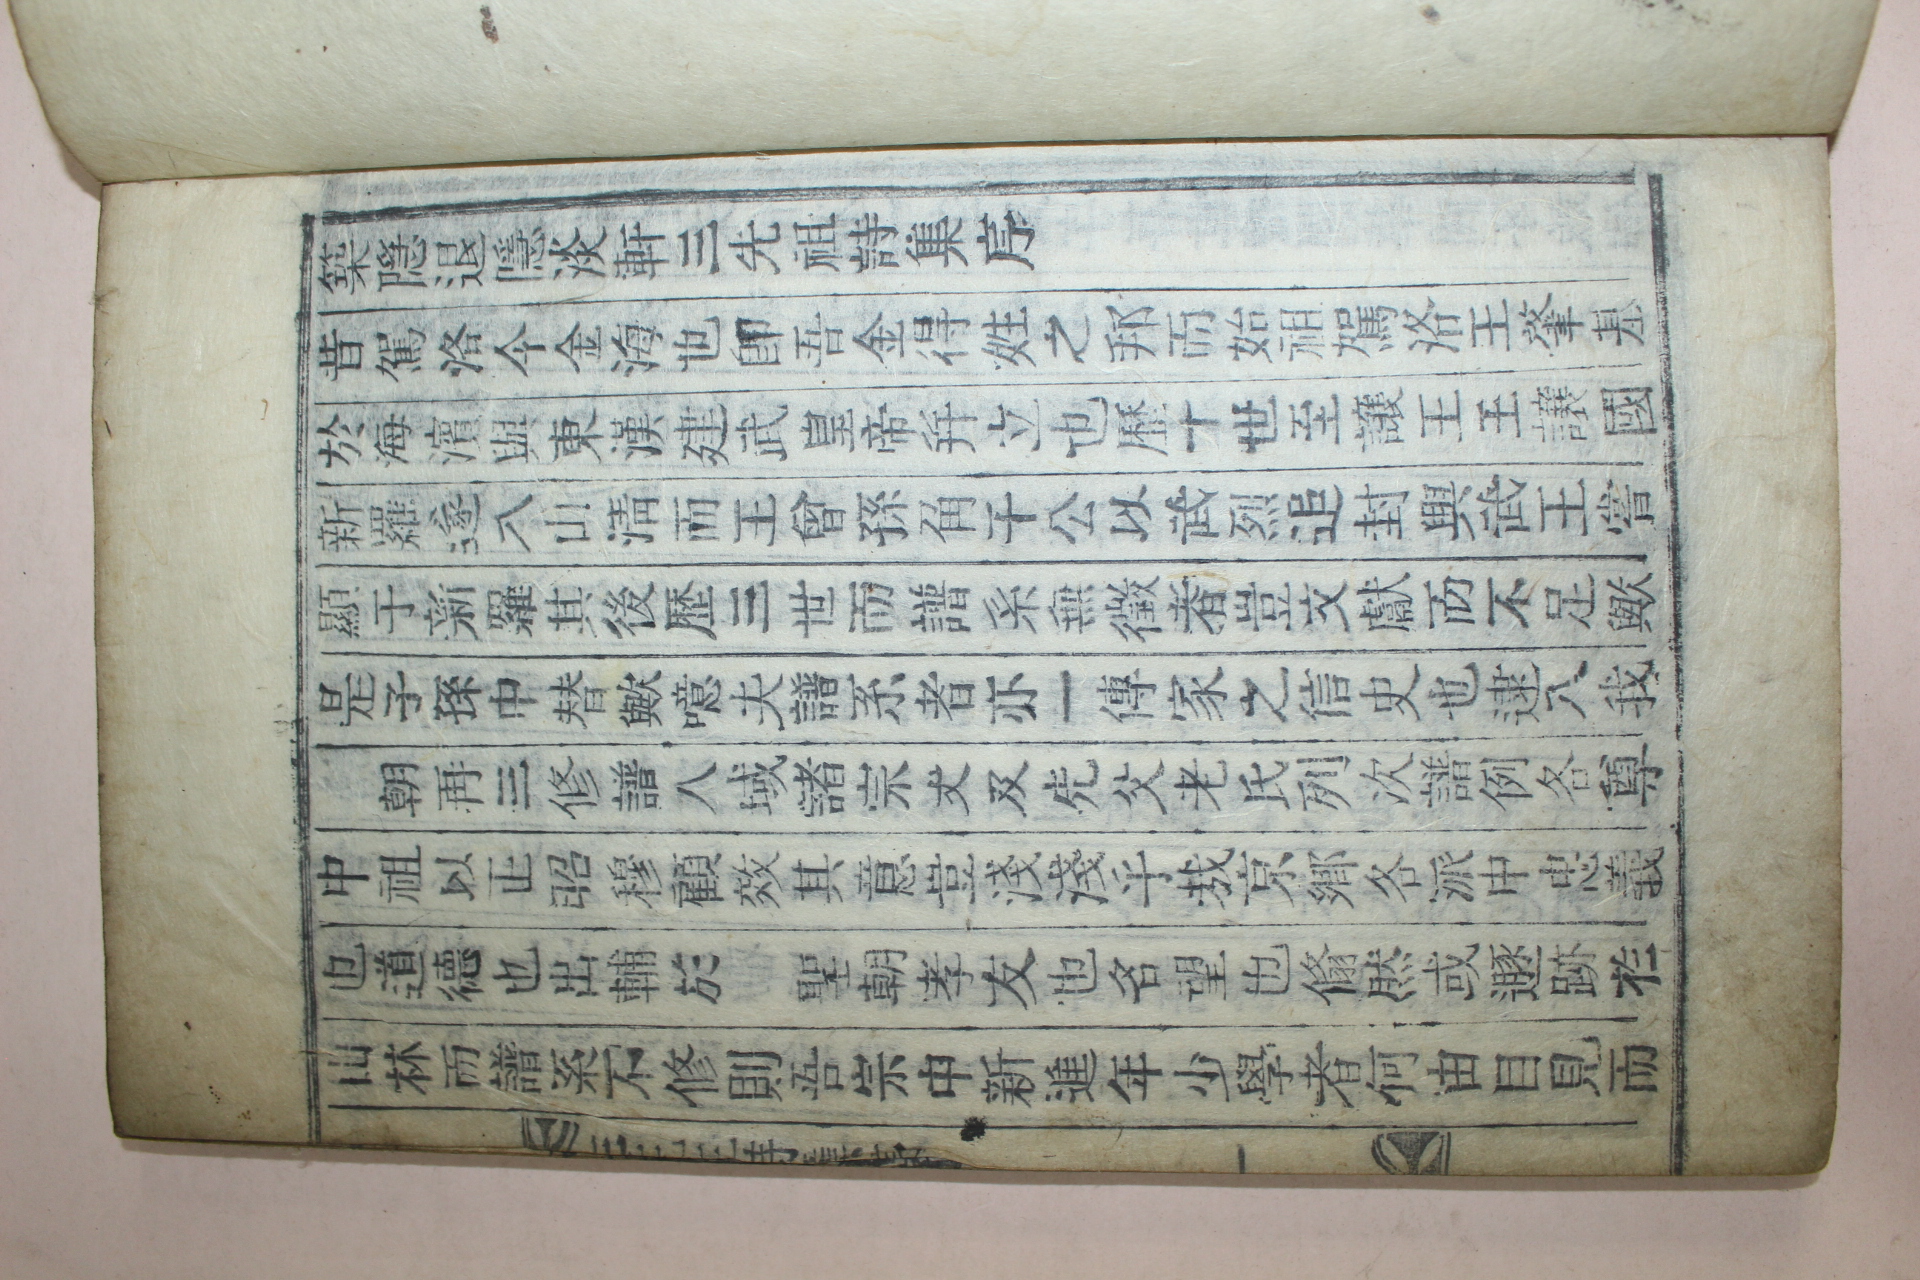 築隱退隱淡軒三先祖詩集序
昔駕洛今金海也卽吾金得姓之邦而始祖駕洛王肇基
於海濱與東漢建武皇帝幷立也歷十世至讓王王讓國
新羅遂入山淸而王曾孫角干公以武烈追封興武王嘗
顯于新羅其後歷三世而譜系無徵者豈文獻而不足歟
是子孫中替歟噫夫譜系者亦一傳家之信史也逮入我
朝再三修譜人域諸宗丈及先父老氏列次譜例各尊
中祖以正昭穆顧效其意豈淺淺乎哉京鄕各派中忠義
也道德也出輔於 聖朝孝友也名望也翛然或遯跡於
山林而譜系不修則吾宗中新進年少學者何由目見而